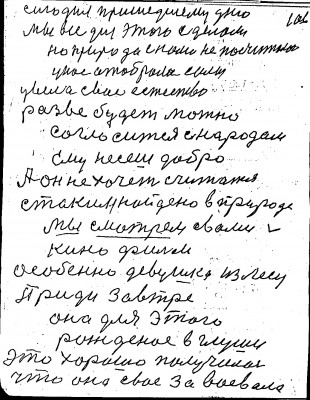 сегодня пришедшему дню
мы все для этого сделали
но природа с нами не посчиталась
ужас отобрала силы
увела свое естество
разве будет можно
согласится с народам
ему несеш добро
А он не хочет считатся
с таким найдено в природе
мы смотрем с вами
кино филм
особенно девушка из лесу
Приди Завтре
она для этого
рожденое в глуши
Это хорошо получилас
что она свое Завоевала